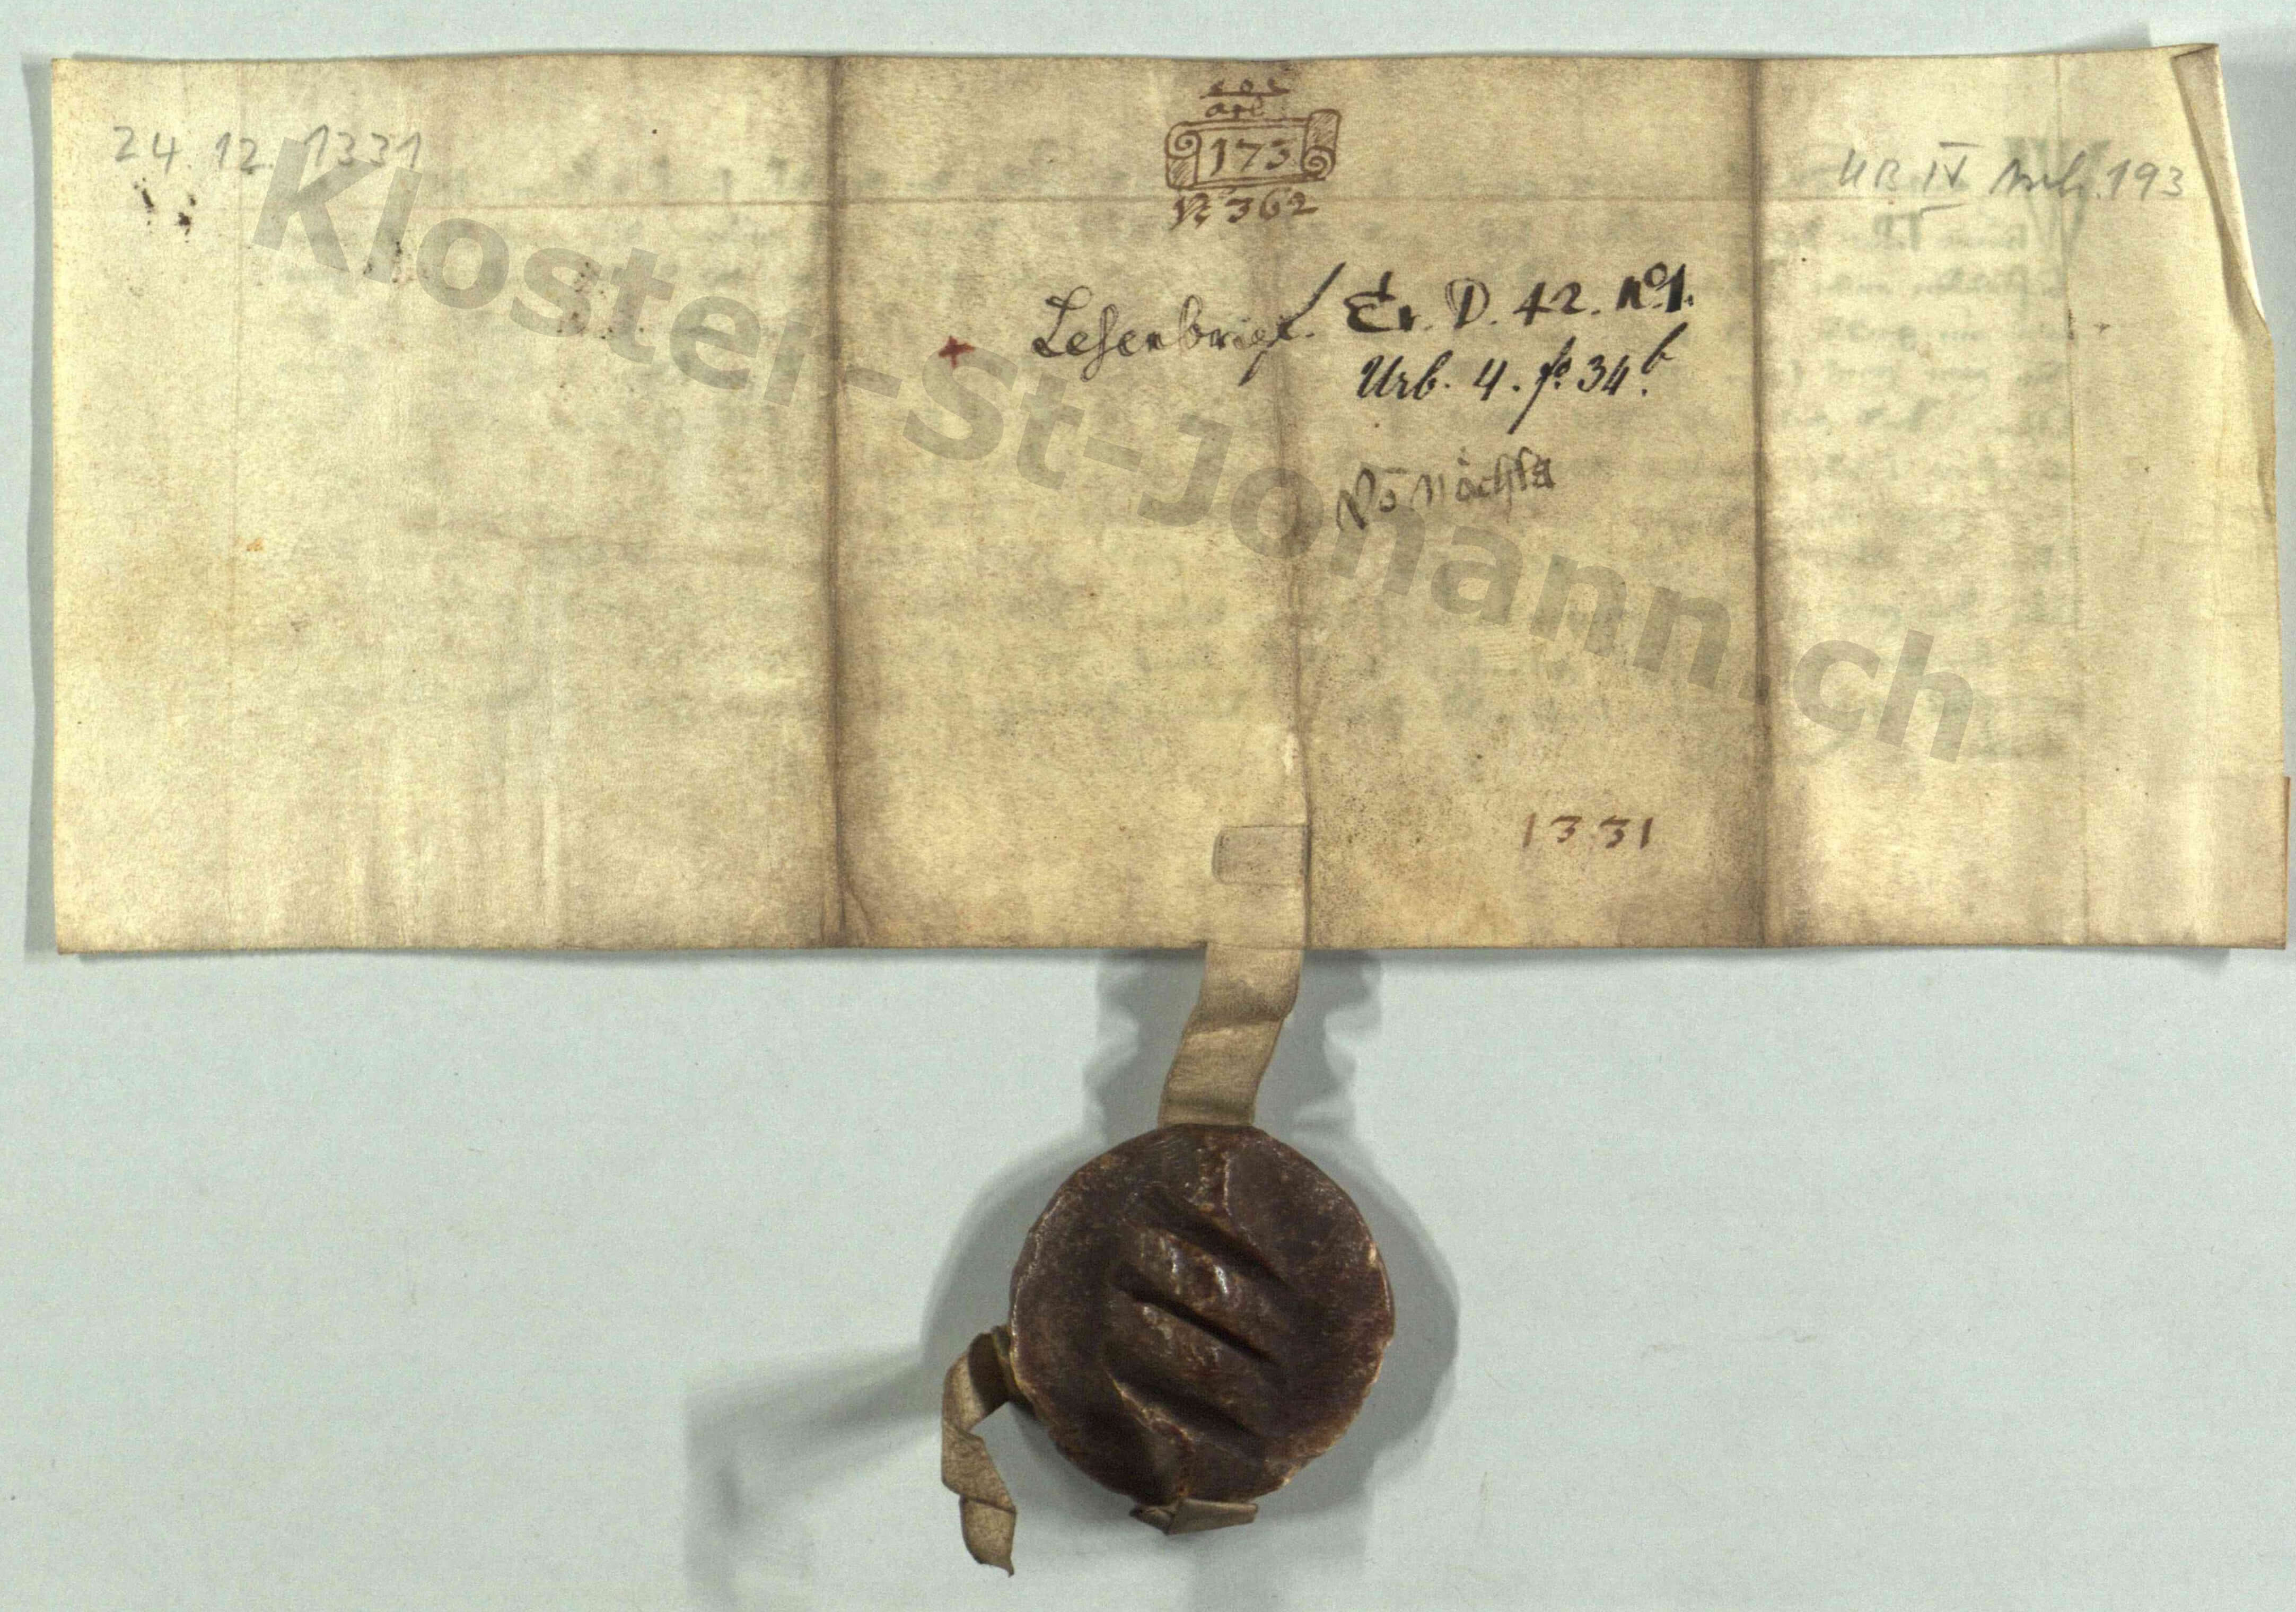 24.12.1331
art.
173
N 362
UB IV Anh. 193
+ Lehenbrief. Er. D. 42. No 1.
Urb. 4. fo. 34b.
Vō
1331
Kloster-St-Johann.ch